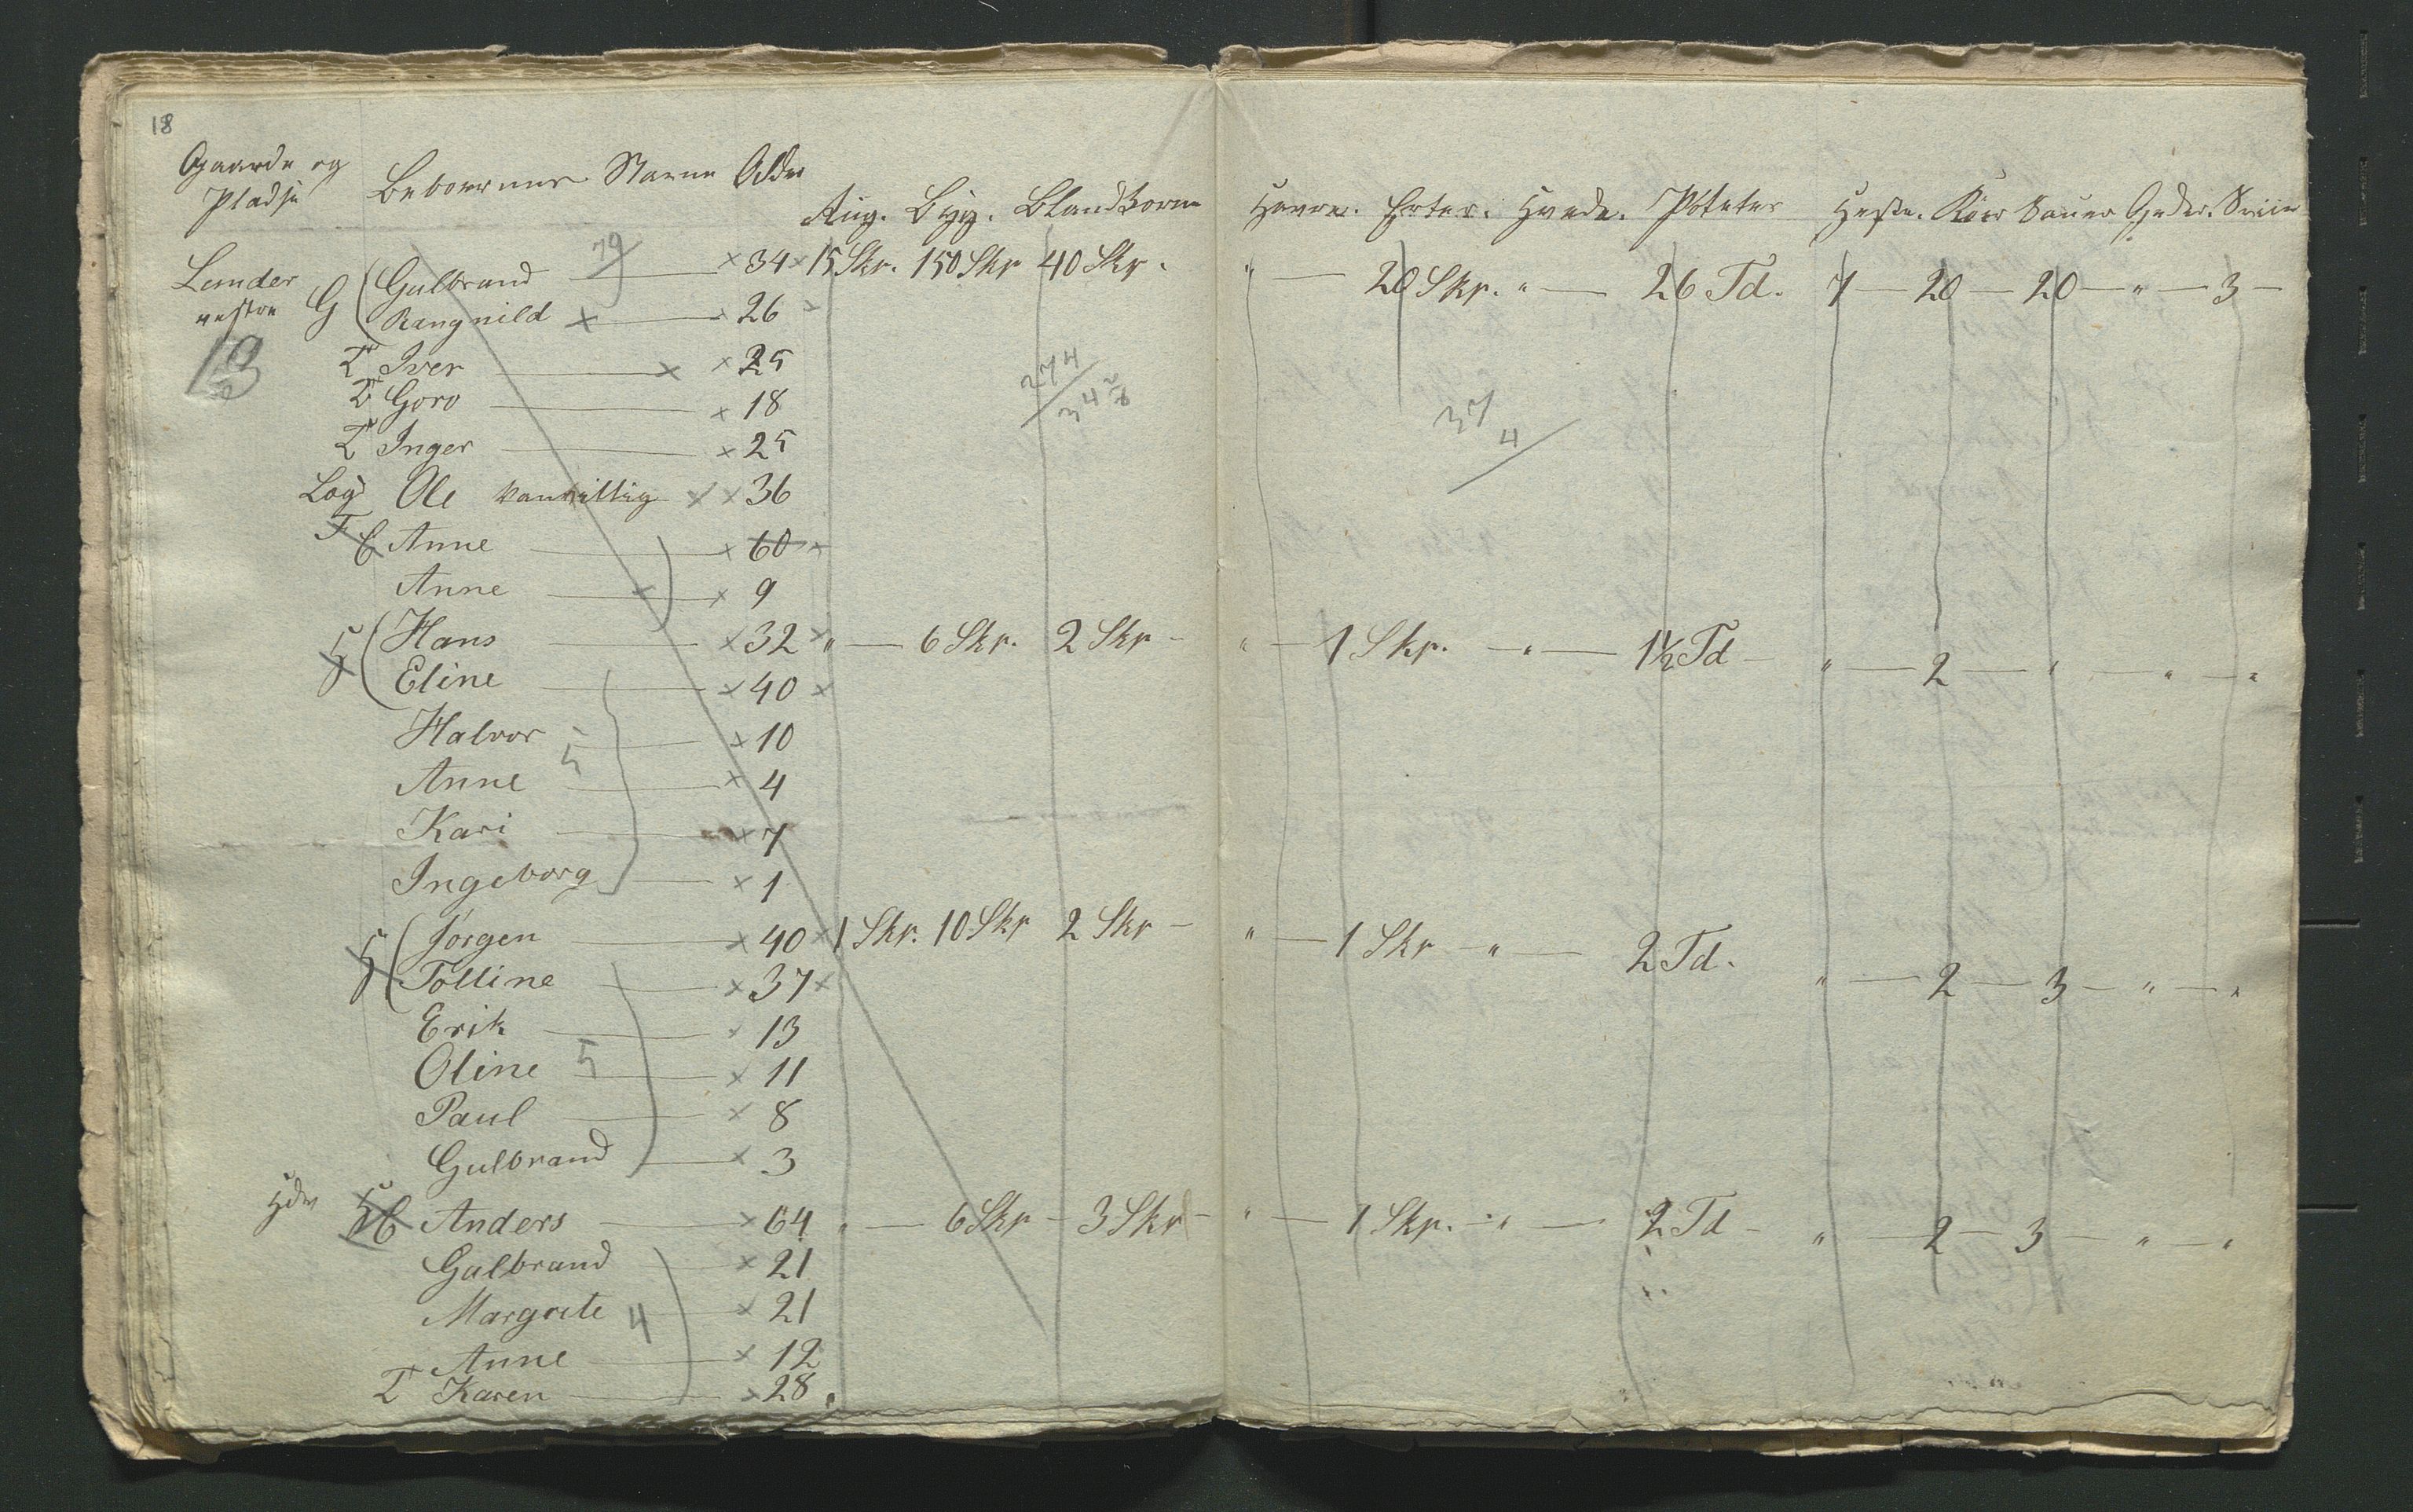 18
Gaarde og Pladse Beboernes Navne Alder Rug. Byg. Blandkorn Havre. Erter. Hvede. Poteter Heste. Kiør Sauer Geder. Sviin
Lunder G Gulbrand 79 × 34 × 15 Skr. 150 Skr 40 Skr. " — 20 Skr. " — 26 Td. 7 — 20 — 20 — " — 3 —
vestre Rangnild × × 26
13
T Iver × × 25 274
T Goro × 18 34 37
T Inger × 25 4
Log Ole vanvittig × × 36
F E Anne × 60
Anne × × 9
H Hans × 32 × " — 6 Skr. 2 Skr — " — 1 Skr. — " — 1½ Td — " — 2 — " — " — "
Eline × 40 ×
Halvor × 10
5
Anne × 4
Kari × 7
Ingeborg × 1
H Jörgen × 40 × 1 Skr. 10 Skr 2 Skr — " — 1 Skr — " — 2 Td. " — 2 — 3 — " — "
Tolline × 37 ×
Erik × 13
Oline 5 × 11
Paul × 8
Gulbrand × 3
H E Anders × 64 " — 6 Skr — 3 Skr — " — 1 Skr. — " — 2 Td — " — 2 — 3 — " — "
Gulbrand × 21
Margrete 4 × 21
Anne × 12
T Karen × 28